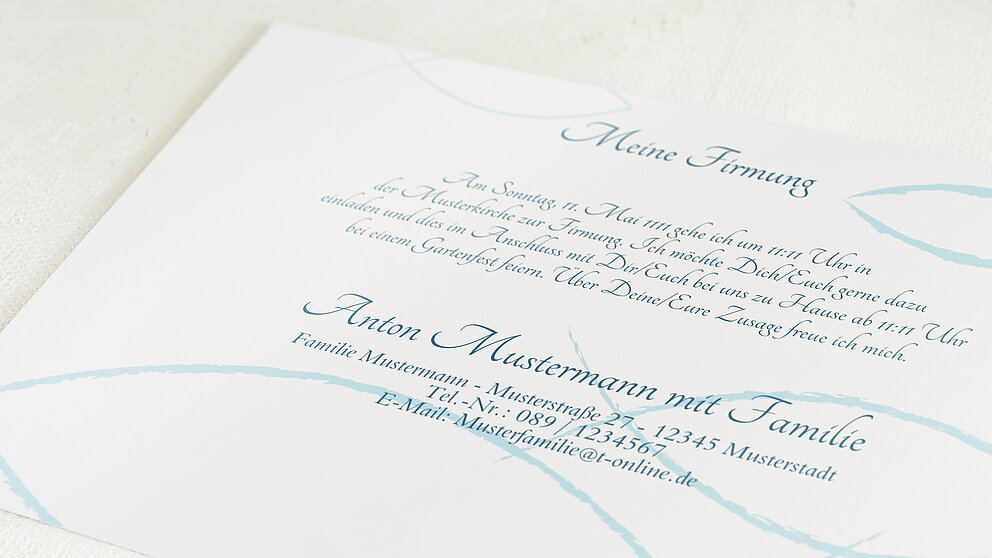 Meine Firmung
Am Sonntag, 11. Mai 1111 gehe ich um 11:11 Uhr in
der Musterkirche zur Firmung. Ich möchte Dich/Euch gerne dazu
einladen und dies im Anschluss mit Dir/Euch bei uns zu Hause ab 11:11 Uhr
bei einem Gartenfest feiern. Über Deine/Eure Zusage freue ich mich.
Anton Mustermann mit Familie
Familie Mustermann - Musterstraße 27 - 12345 Musterstadt
Tel.-Nr.: 089 / 1234567
E-Mail: Musterfamilie@t-online.de